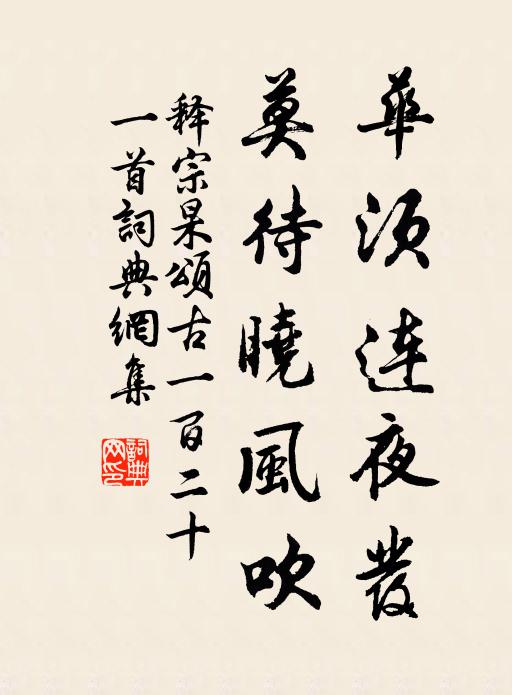 華須連夜發
莫待曉風吹
释宗杲頌古一百二十
一首詞典網集
詞典網印